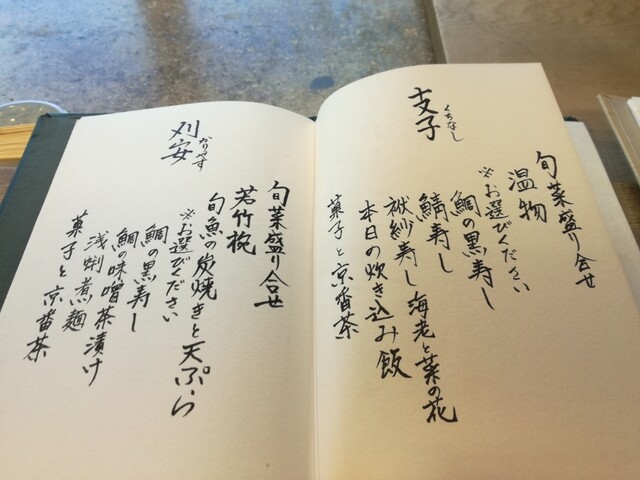 支子
くちなし
旬菜盛り合せ
温物
※お選びください
鯛の黒寿し
鯖寿し
袱紗寿し 海老と菜の花
本日の炊き込み飯
菓子と京番茶
刈安
かりやす
旬菜盛り合せ
若竹椀
旬魚の炭焼きと天ぷら
※お選びください
鯛の黒寿し
鯛の味噌茶漬け
浅蜊煮麺
菓子と京番茶